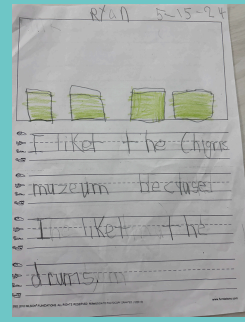 Ryan 5-15-24
I liket the Chigris
muzeum Hecuse
I liket the
drums,